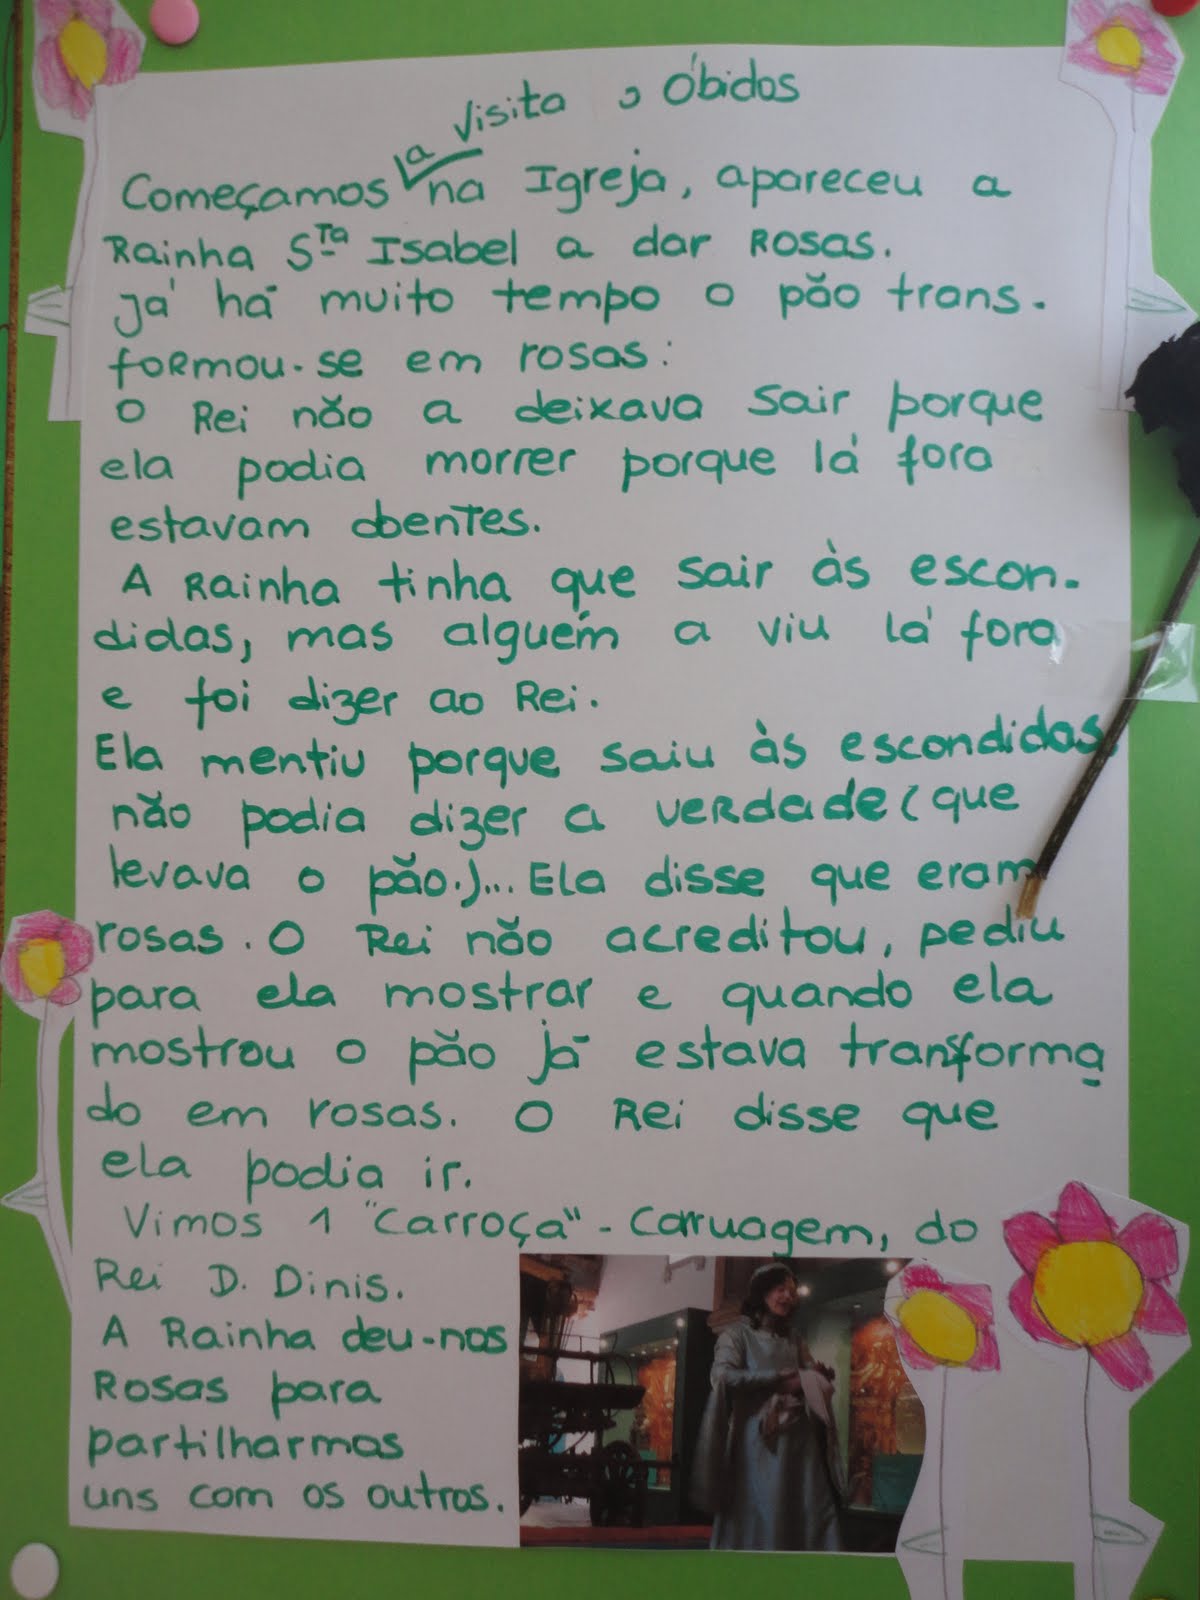 a Visita a Óbidos
Começamos na Igreja, apareceu a
Rainha Sta Isabel a dar Rosas.
Já há muito tempo o pão trans-
formou-se em rosas:
O Rei não a deixava sair porque
ela podia morrer porque lá fora
estavam doentes.
A Rainha tinha que sair às escon-
didas, mas alguém a viu lá fora
e foi dizer ao Rei.
Ela mentiu porque saiu às escondidas,
não podia dizer a verdade (que
levava o pão.)... Ela disse que eram
rosas. O Rei não acreditou, pediu
para ela mostrar e quando ela
mostrou o pão já estava transforma
do em rosas. O Rei disse que
ela podia ir.
Vimos 1 "Carroça" - Carruagem, do
Rei D. Dinis.
A Rainha deu-nos
Rosas para
partilharmas
uns com os outros.